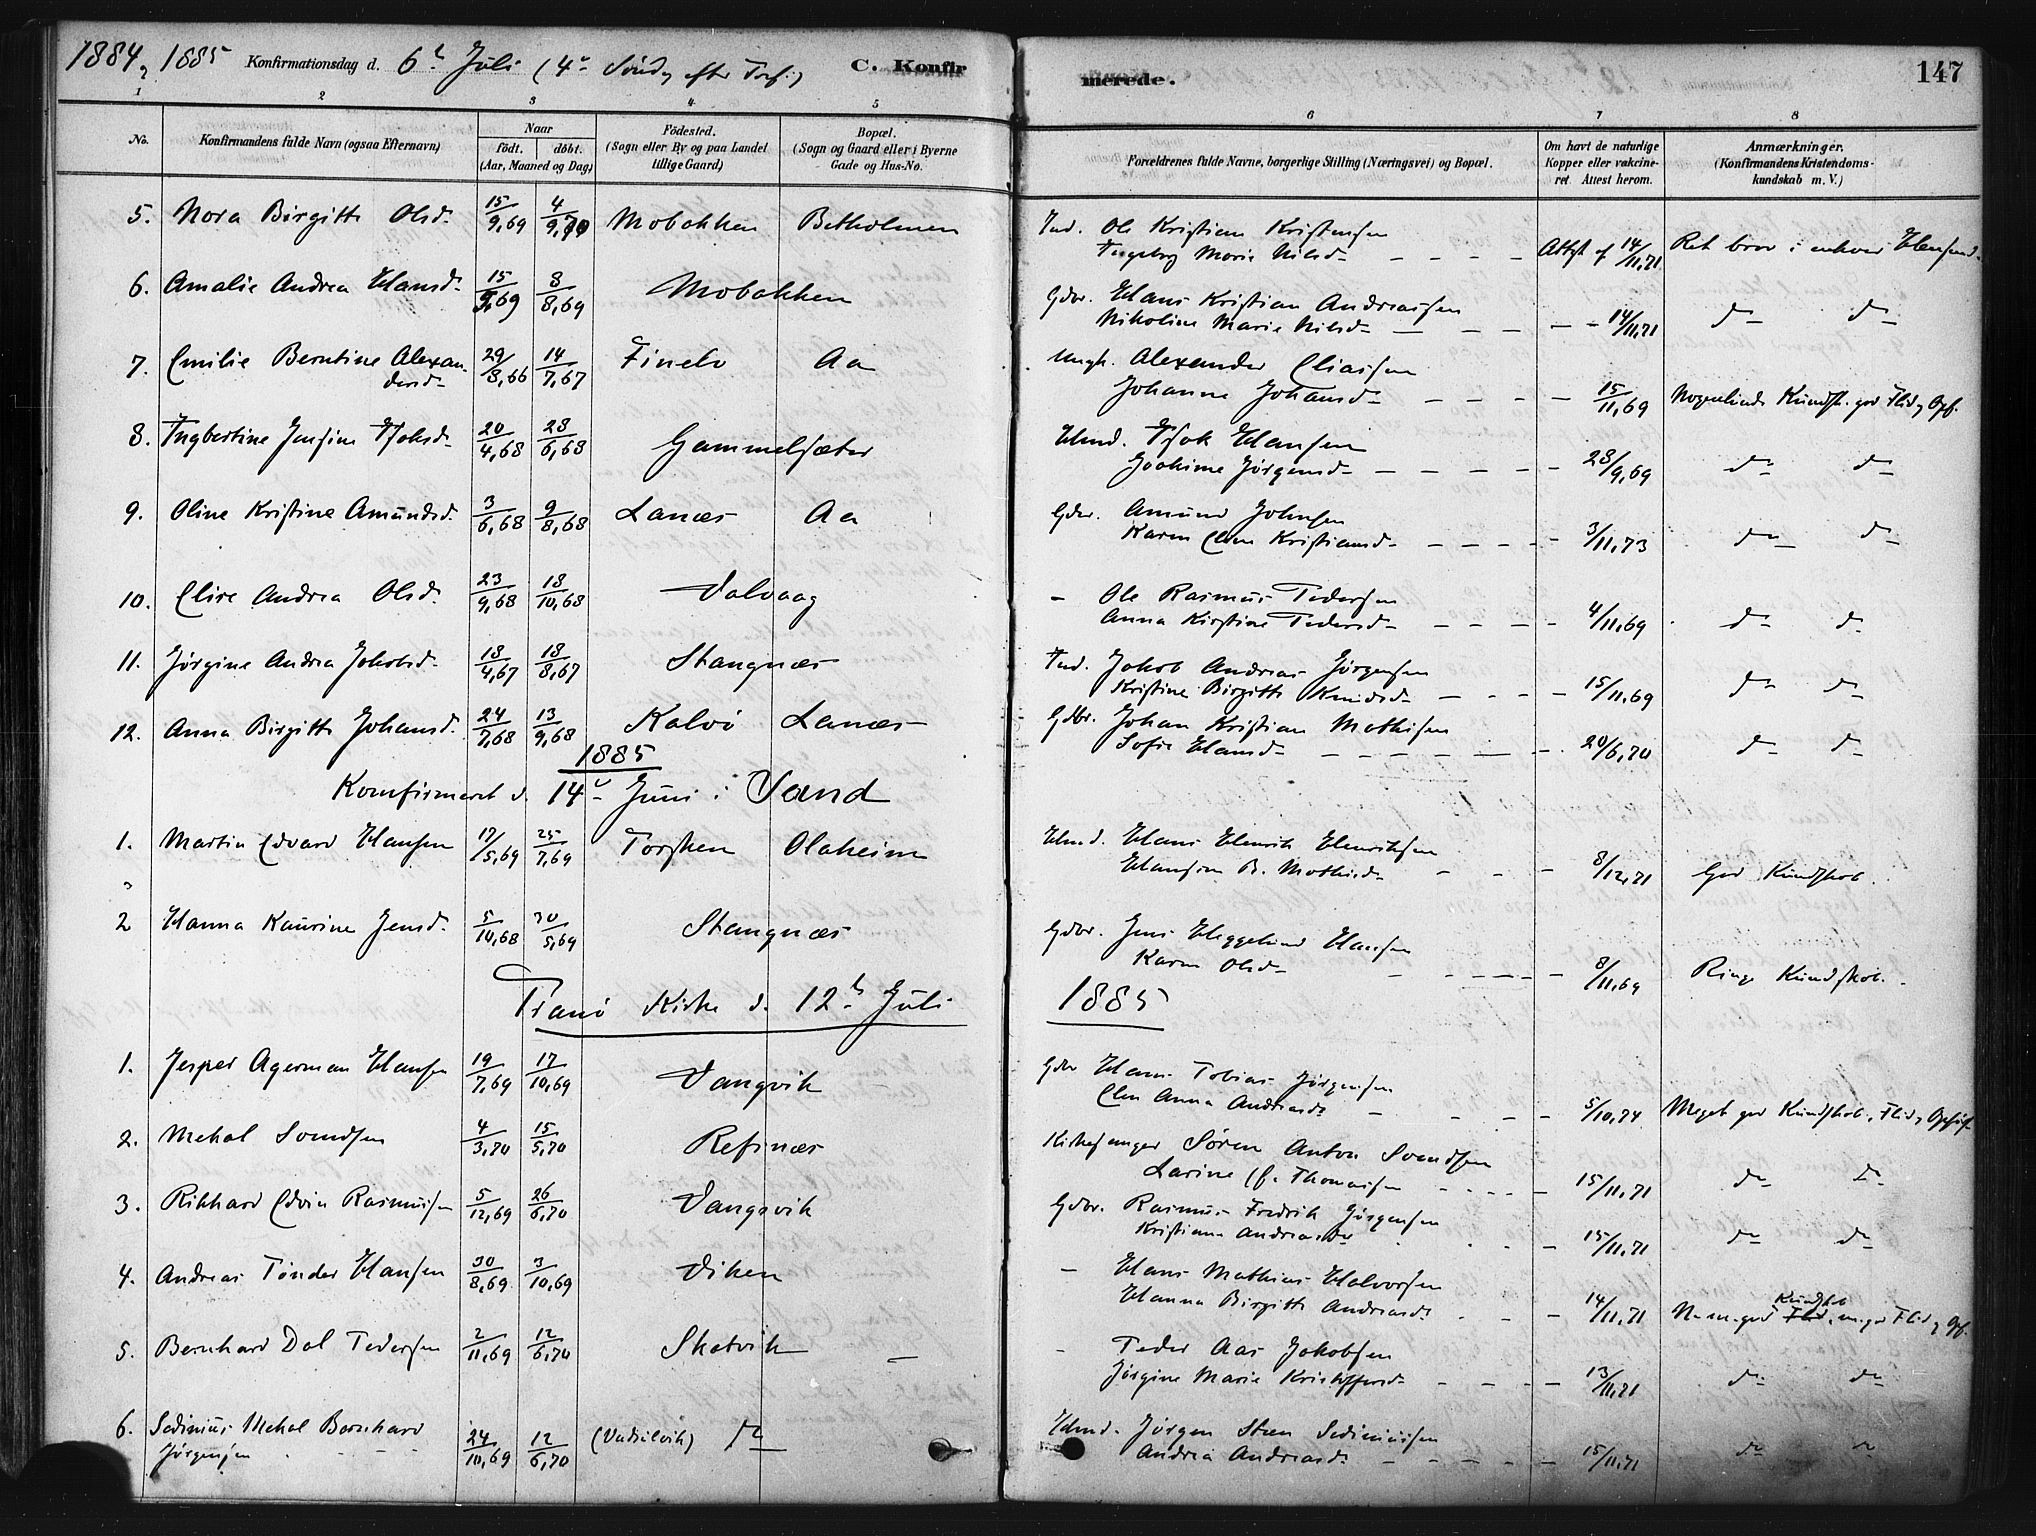 1884, 1885 Konfirmationsdag d. 6te Juli (4de Sønd. efter Tref.) C. Konfirmerede. 147
1 2 3 4 5 6 7 8
No. Konfirmandens fulde Navn (ogsaa Efternavn) Naar født. døbt. (Aar, Maaned og Dag) Födested. (Sogn eller By og paa Landet tillige Gaard) Bopæl. (Sogn og Gaard eller i Byerne Gade og Hus-No. Forældrenes fulde Navne, borgerlige Stilling (Næringsvei) og Bopæl. Om havt de naturlige Kopper eller vakcineret. Attest herom. Anmærkninger. (Konfirmandens Kristendomskundskab m. V.)
5. Nora Birgitte Olsd. 15/9,69 4/9,70 Mobakken Betholmen Ind. Ole Kristian Kristensen
Ingeborg Marie Nilsd. Attest af 14/11,71 Ret brav i enhver Henseend.
6. Amalie Andrea Hansd. 15/5,69 8/8,69 Mobakken Gdbr. Hans Kristian Andreassen
Nikoline Marie Nilsd. 14/11,71 do do
7. Emilie Berntine Alexandersd. 29/8,66 14/7,67 Finelv Aa Ungk. Alexander Eliassen
Johanne Johansd. 15/11,69 Nogenlunde Kundsk. god Flid og Opf.
8. Ingbertine Jensine Isaksd. 20/4,68 28/6,68 Gammelsæter Husmd. Isak Hansen
Joakime Jørgensd. 28/9,69 do do
9. Oline Kristine Amundsd. 3/6,68 9/8,68 Lanæs Aa Gdbr. Amund Johnsen
Karen Elen Kristiansd. 3/11,73 do do
10. Elire Andrea Olsd. 23/9,68 18/10,68 Valvaag - Ole Rasmus Pedersen
Anna Kirstine Pedersd. 4/11,69 do do
11. Jørgine Andrea Jakobsd. 18/4,67 18/8,67 Stangnæs Ind. Jakob Andreas Jørgensen
Kristine Birgitte Knudsd. 15/11,69 do do
12. Anna Birgitte Johansd. 24/7,68 13/9,68 Kalvö Lanæs Gdbr. Johan Kristian Mathisen
Sofie Hansd. 20/6,70 do do
1885
Konfirmeret d. 14de Juni i Sand
1. Martin Edvard Hansen 17/5,69 25/7,69 Torsken Olaheim Husmd. Hans Henrik Henriksen
Hansine B. Mathisd. 8/12,71 God Kundskab.
2 Hanna Kaurine Jensd. 5/10,68 30/5,69 Stangnæs Gdbr. Jens Heggelund Hansen
Karen Olsd. 8/11,69 Ringe Kundskab.
Tranö Kirke d. 12te Juli 1885
1. Jesper Agerman Hansen 19/7,69 17/10,69 Vangvik Gdbr Hans Tobias Jørgensen
Elen Anna Andreasd. 5/10,74 Meget god Kundskab, Flid og Opførs.
2. Mekal Svendsen 4/3,70 15/5,70 Refsnæs Kirkesanger Søren Anton Svendsen
Larine f. Thomassen 15/11,71 do do
3. Rikhard Edvin Rasmussen 5/12,69 26/6,70 Vangsvik Gdbr. Rasmus Fredrik Jørgensen
Kristiane Andreasd. 15/11,71 do do
4. Andreas Tønder Hansen 30/8,69 3/10,69 Viken - Hans Mathias Halvorsen
Hanna Birgitte Andreasd. 14/11,71 N. m. god Kundskab, m. god Flid og Opf.
5. Bernhard Dal Pedersen 2/11,69 12/6,70 Skatvik - - Peder Aas Jakobsen
Jørgine Marie Kristoffersd. 13/11,71 do do
6. Sedinius Mekal Bernhard Jørgensen 24/10,69 12/6,70 (Vadsilvik) do Husmd. Jørgen Steen Sediniussen
Andrea Andreasd. 15/11,71 do do